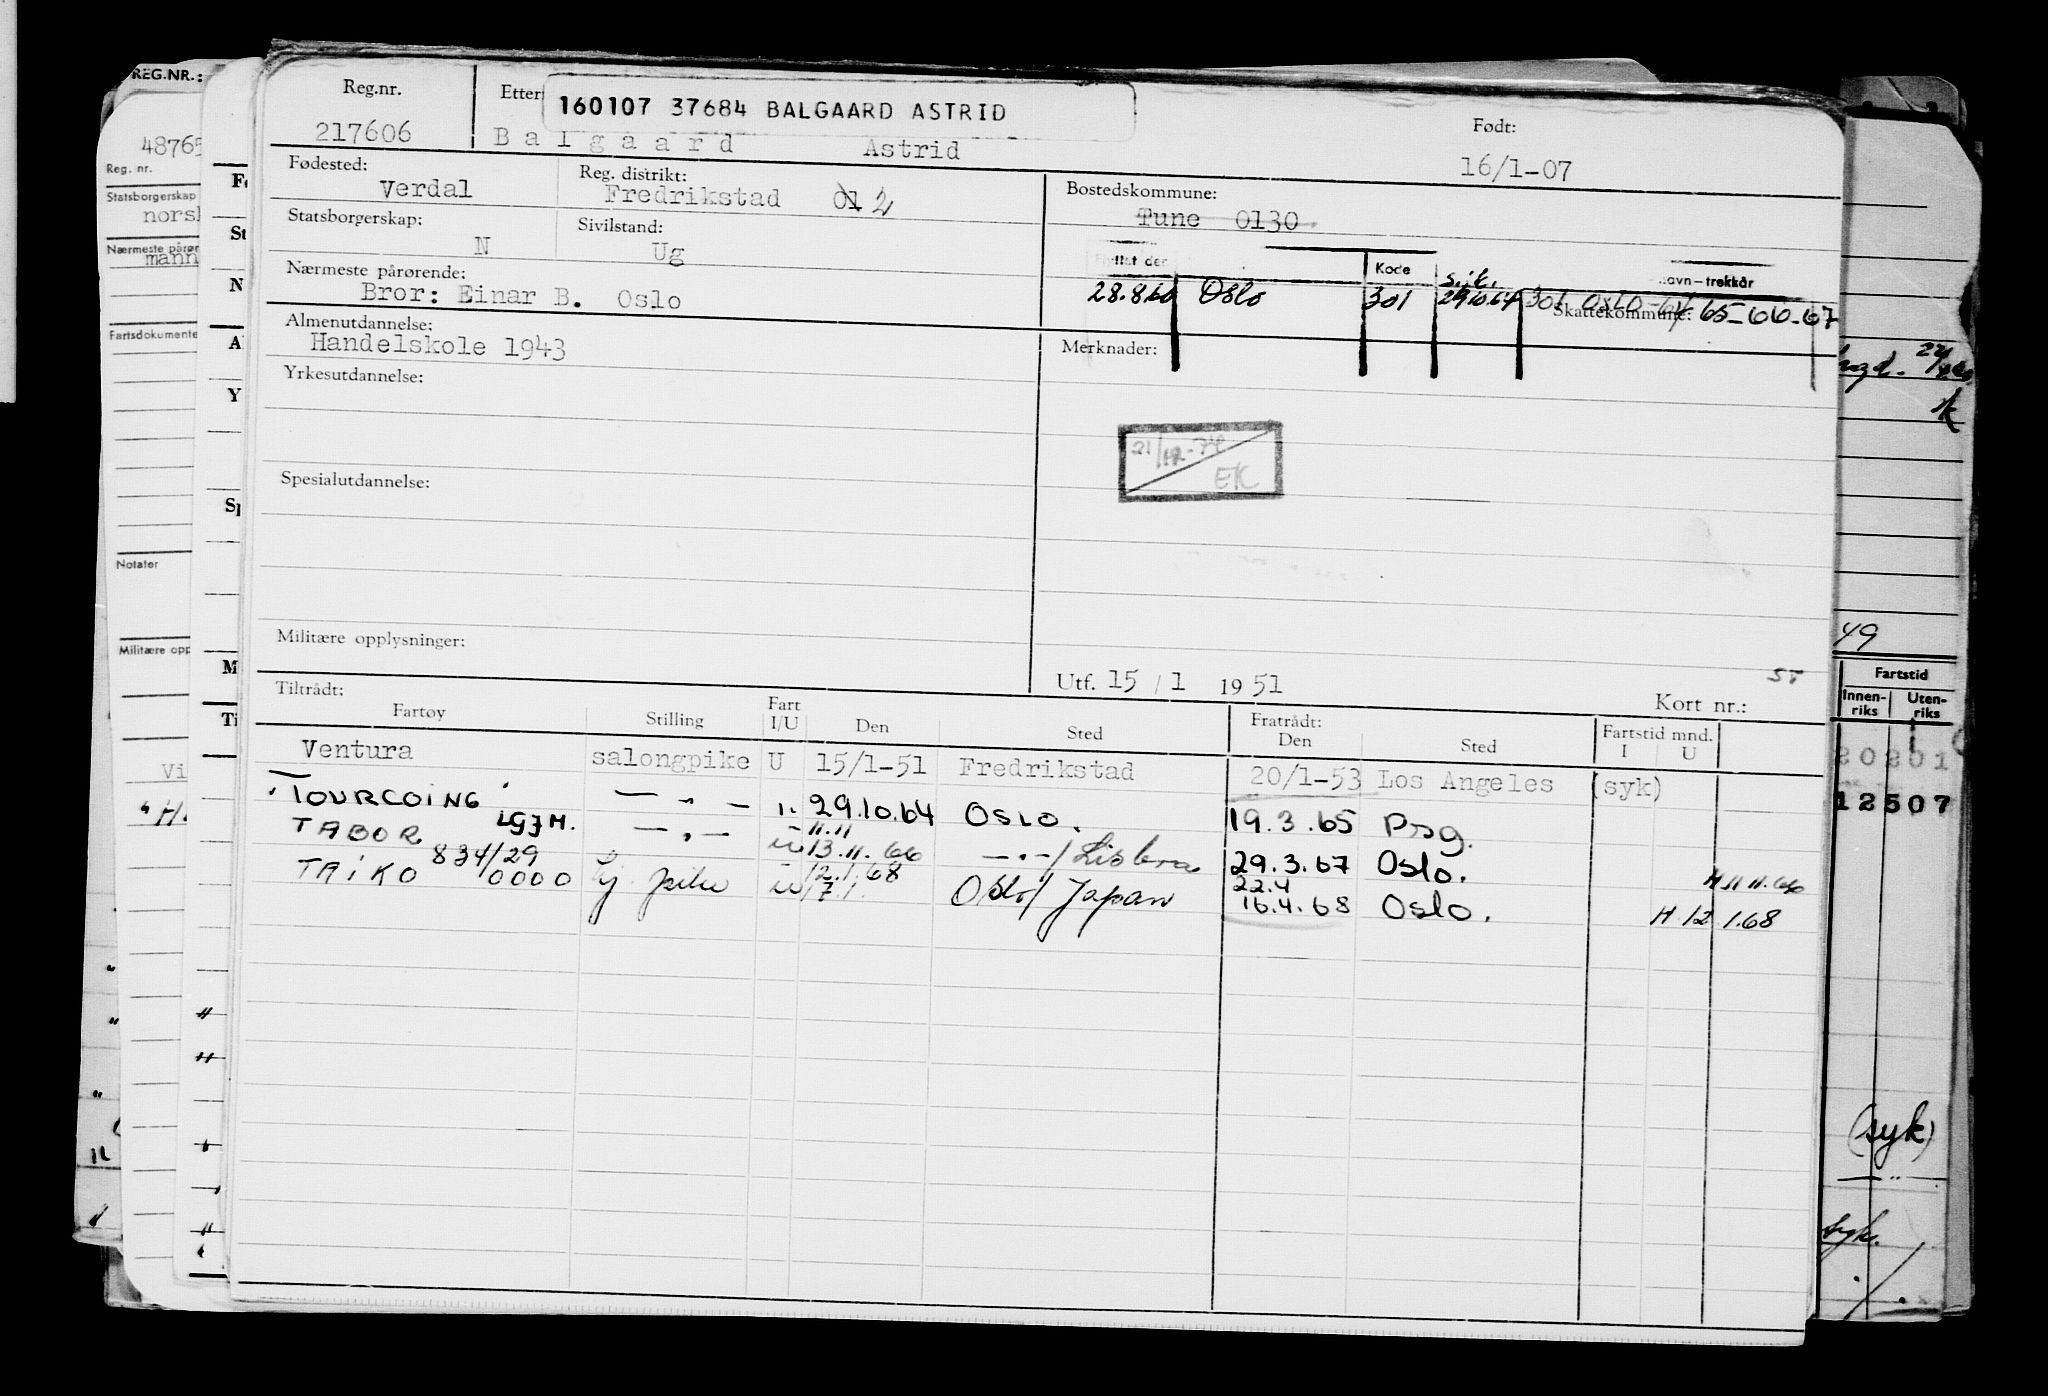 REG.NR.:
48765
Reg. nr.
Statsborgerskap
norsk
Nærmeste påror
mann
Fartsdokumente
Notater
Militære opp
Reg.nr.
217606
Etter
160107 37684 BALGAARD ASTRID
Balgaard Astrid
Født:
16/1-07
Fødested:
Verdal
Reg. distrikt:
Fredrikstad 01 2
Bostedskommune:
Tune 0130
Statsborgerskap:
N
Sivilstand:
Ug
Flyttet den Kode s.k. navn-trekkår
28.8.60 Oslo 301 29.10.64 301 Oslo-64 65-66-67
Skattekommune:
Nærmeste pårørende:
Bror: Einar B. Oslo
Almenutdannelse:
Handelskole 1943
Merknader:
Yrkesutdannelse:
21/12-74
EK
Spesialutdannelse:
Militære opplysninger:
Utf. 15 / 1 1951
Kort nr.:
Tiltrådt:
Fartøy Stilling Fart I/U Den Sted Fratrådt: Den Sted Fartstid mnd. I U
Ventura salongpike U 15/1-51 Fredrikstad 20/1-53 Los Angeles (syk)
TOURCOING LGJH. — " — 29.10.64 OSLO. 19.3.65 Psg.
TABOR 834/29 — " — 11.11 13.11.66 — " —/ Lisbra 29.3.67 Oslo. H 11.11.66
TAIKO /0000 pike 12.1.68 17.1. Oslo/ Japan 22.4 16.4.68 Oslo. H 12 1.68
49
Fartstid
Innen-riks Uten-riks
20201
12507
(syk)
— " —
syk.